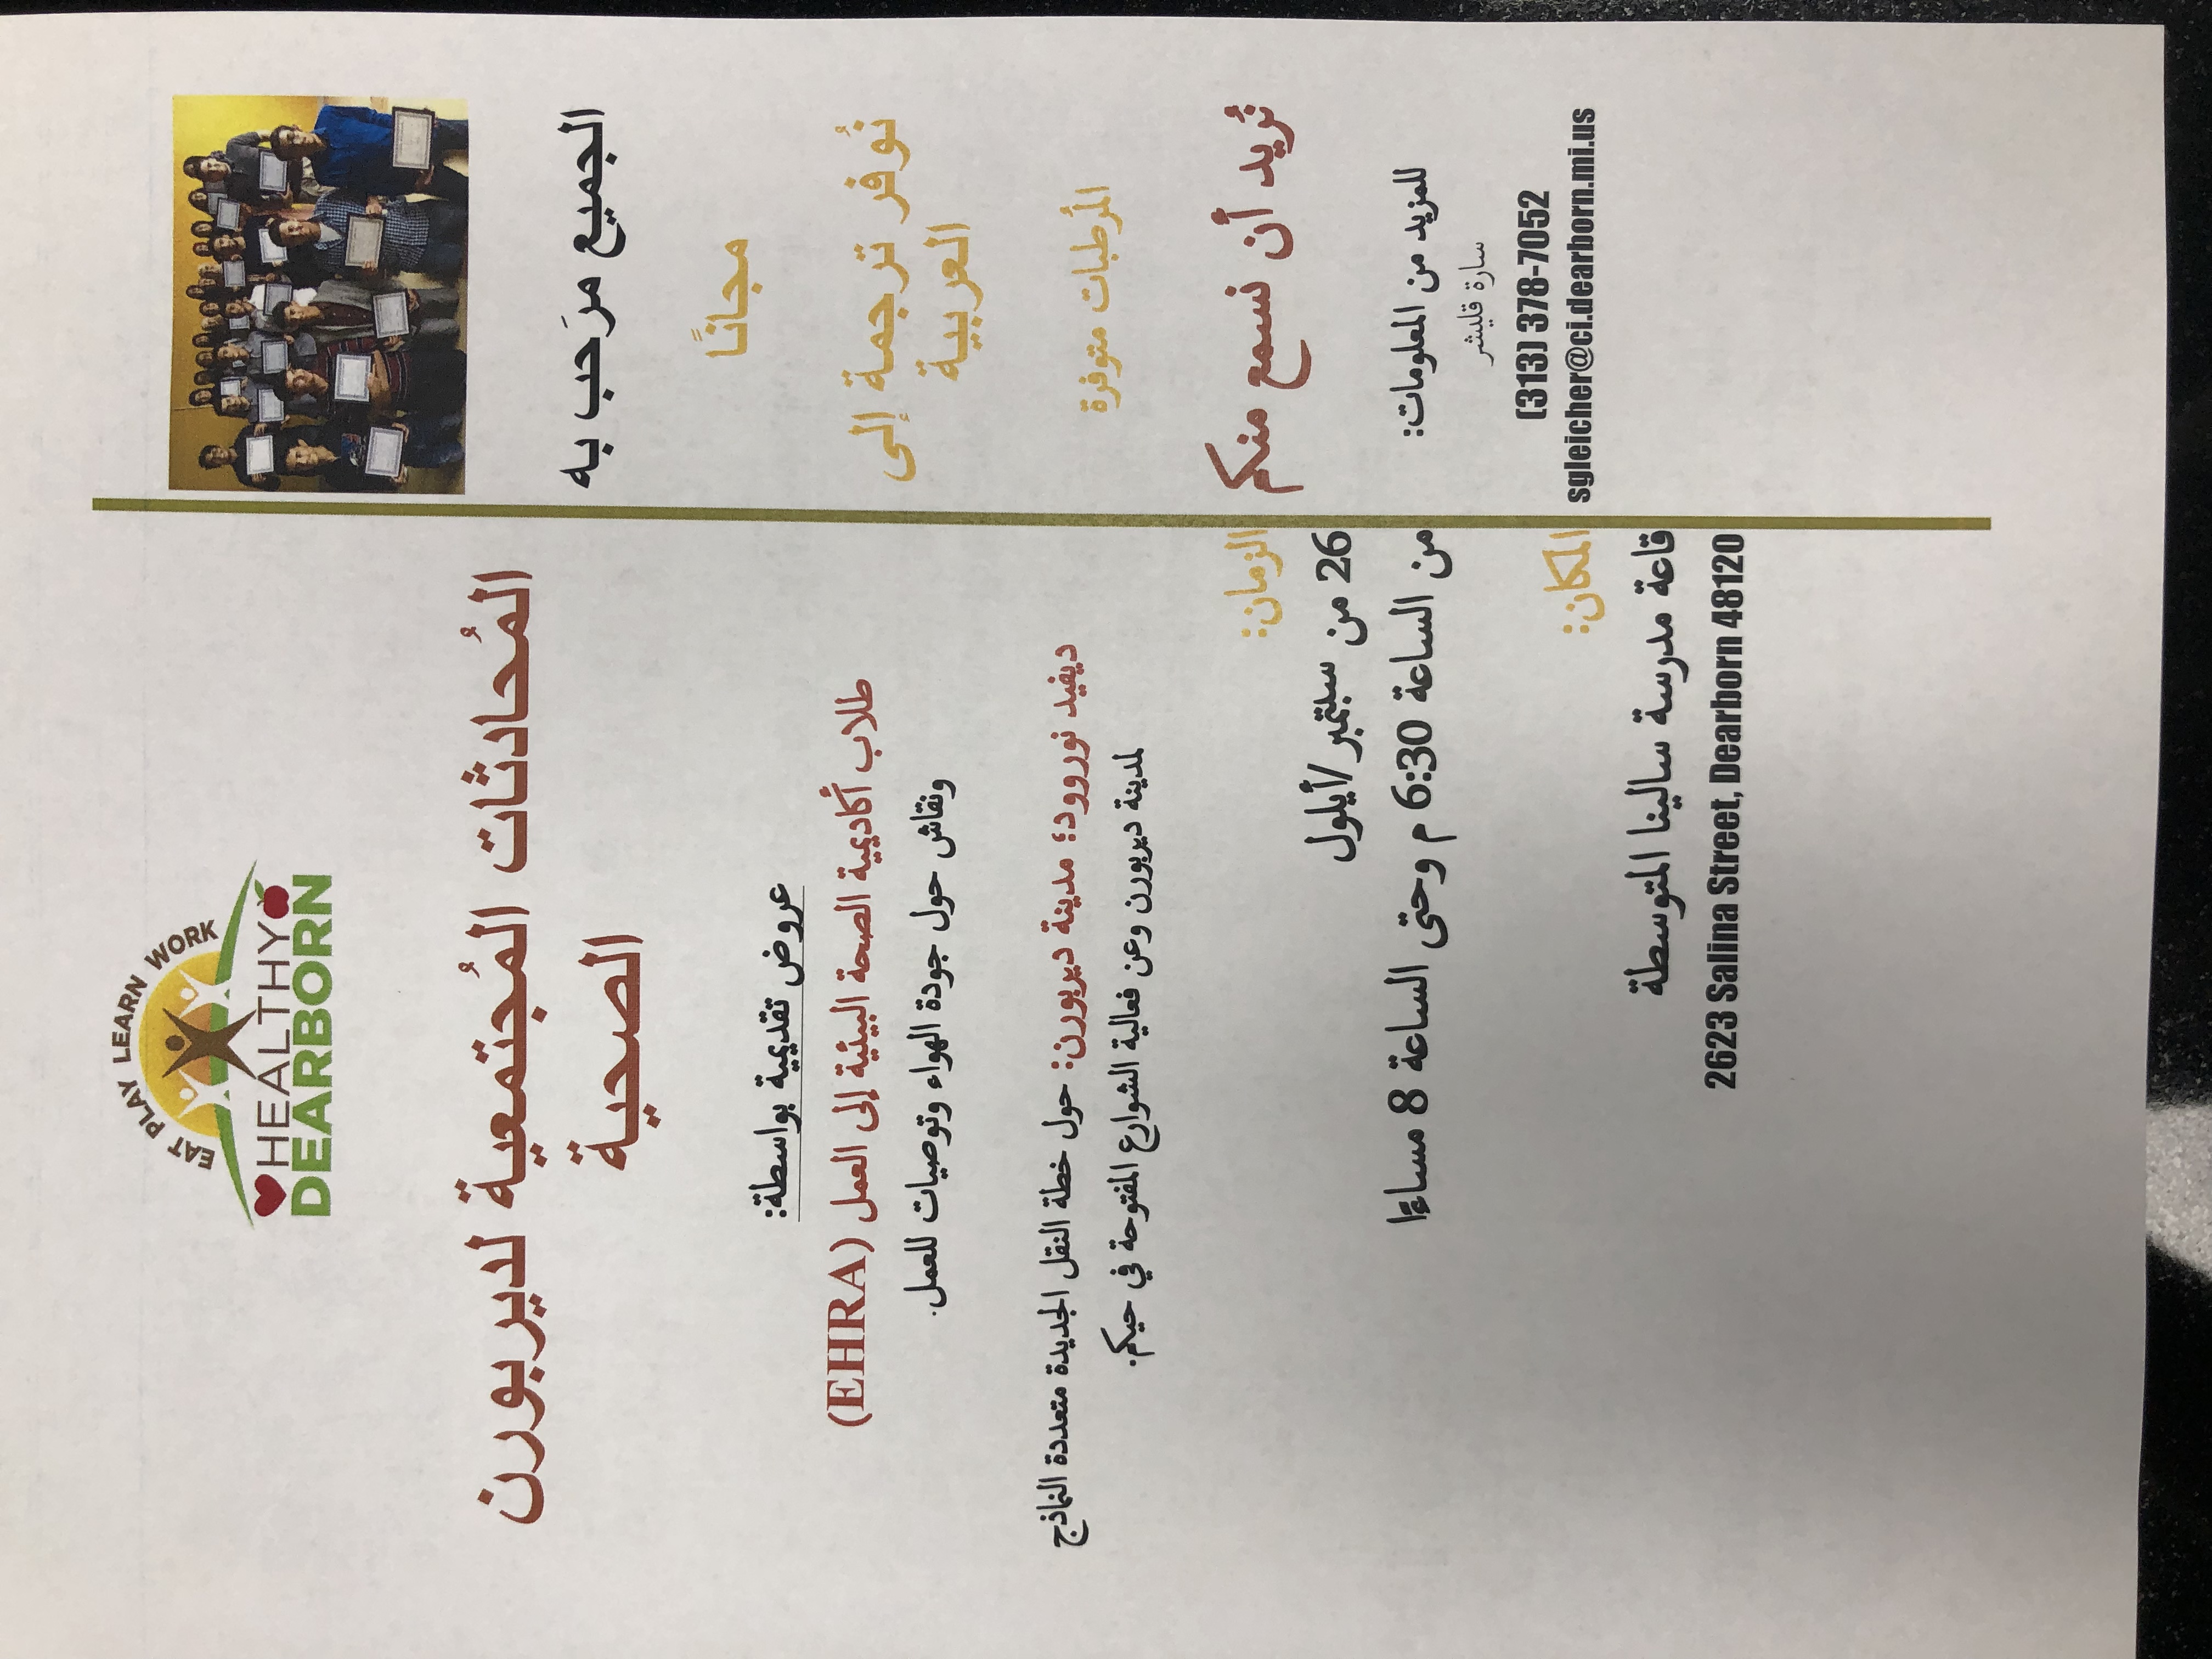 EAT PLAY LEARN WORK
HEALTHY
DEARBORN
المُحادثات المُجتمعية لديربورن
الصحية
عروض تقديمية بواسطة:
طلاب أكاديمية الصحة البيئية إلى العمل (EHRA)
ونقاش حول جودة الهواء وتوصيات للعمل.
ديفيد نوروود؛ مدينة ديربورن: حول خطة النقل الجديدة متعددة النماذج
لمدينة ديربورن وعن فعالية الشوارع المفتوحة في حيكم.
الزمان:
26 من سبتمبر/أيلول
من الساعة 6:30 م وحتى الساعة 8 مساءًا
المكان:
قاعة مدرسة سالينا المتوسطة
2623 Salina Street, Dearborn 48120
الجميع مرَحب به
مجانًا
نُوفر ترجمة إلى
العربية
المُرطبات متوفرة
نُريد أن نسمع منكم
للمزيد من المعلومات:
سارة قليشر
(313) 378-7052
sgleicher@ci.dearborn.mi.us